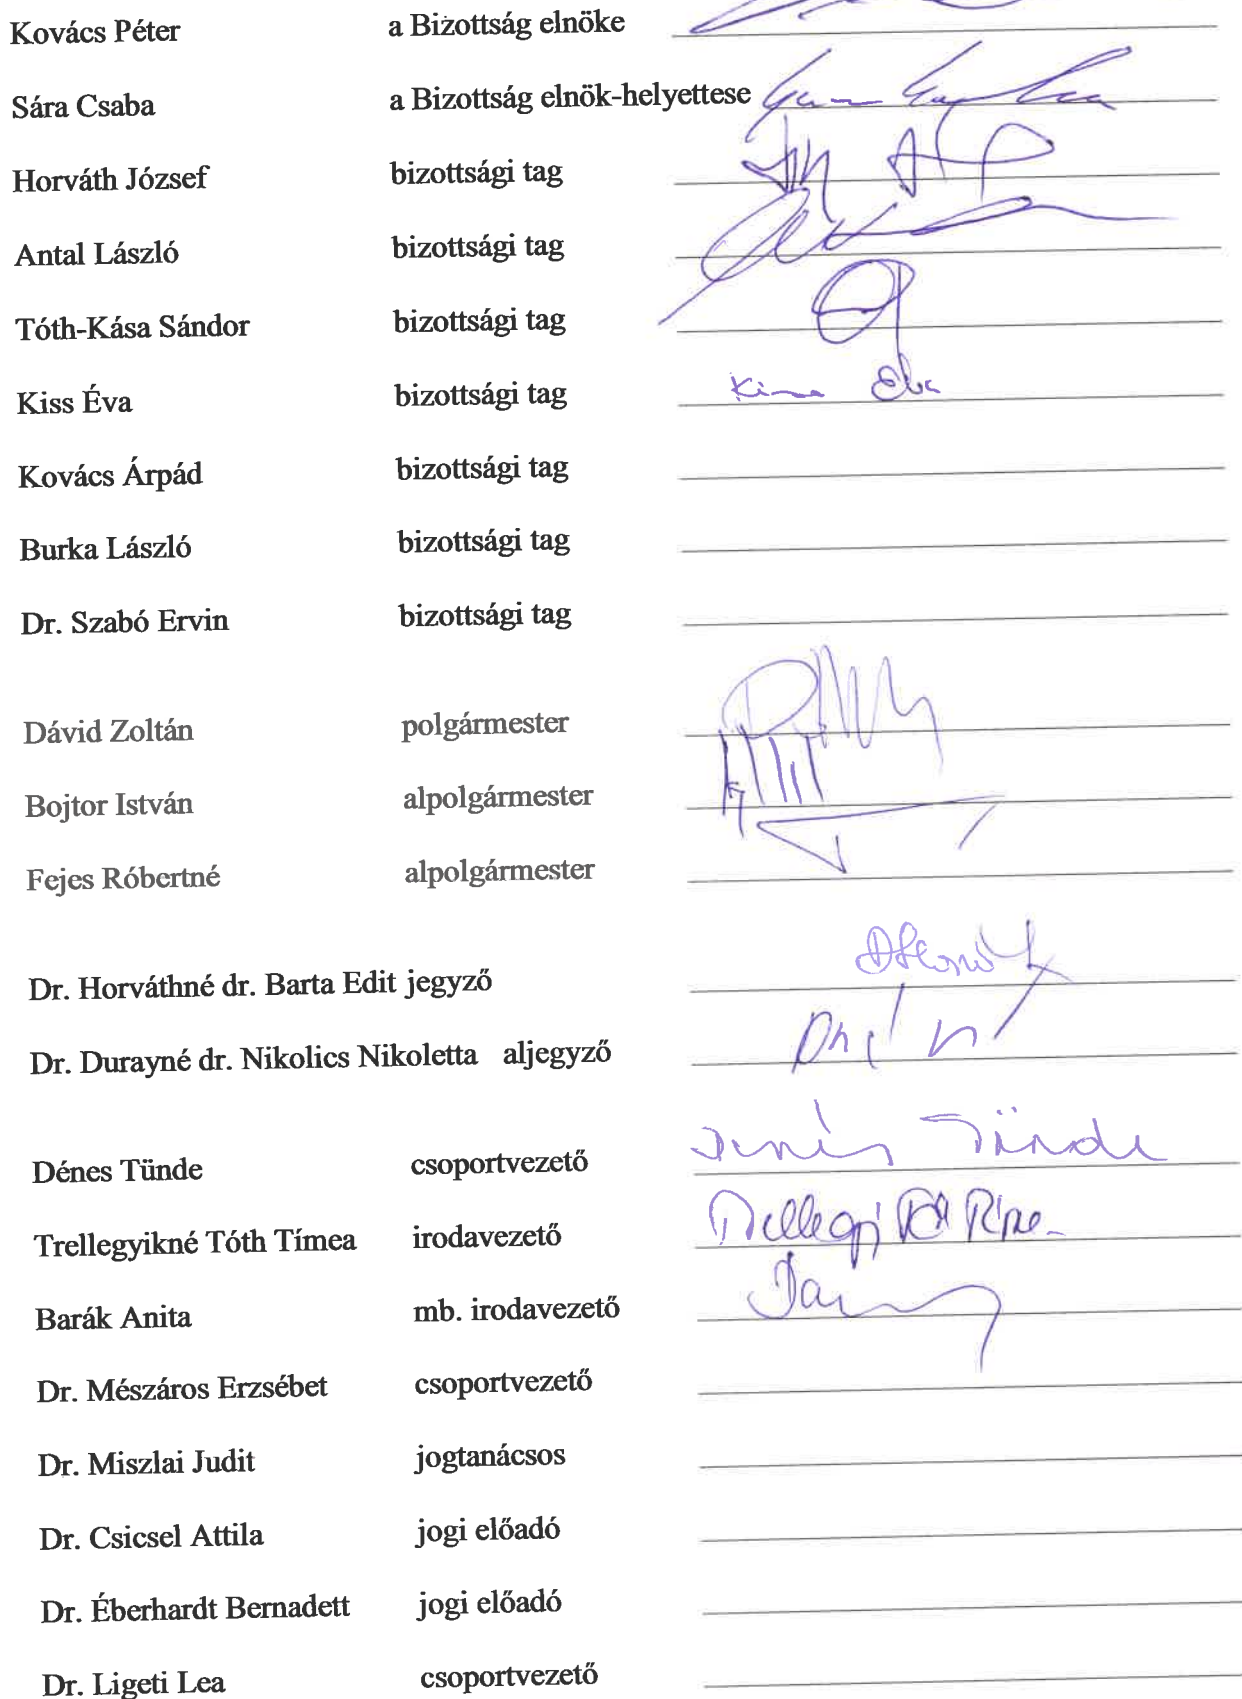 Kovács Péter a Bizottság elnöke
Sára Csaba a Bizottság elnök-helyettese
Horváth József bizottsági tag
Antal László bizottsági tag
Tóth-Kása Sándor bizottsági tag
Kiss Éva bizottsági tag Kiss Éva
Kovács Árpád bizottsági tag
Burka László bizottsági tag
Dr. Szabó Ervin bizottsági tag
Dávid Zoltán polgármester
Bojtor István alpolgármester
Fejes Róbertné alpolgármester
Dr. Horváthné dr. Barta Edit jegyző
Dr. Durayné dr. Nikolics Nikoletta aljegyző
Dénes Tünde csoportvezető Dénes Tünde
Trellegyikné Tóth Tímea irodavezető
Barák Anita mb. irodavezető
Dr. Mészáros Erzsébet csoportvezető
Dr. Miszlai Judit jogtanácsos
Dr. Csicsel Attila jogi előadó
Dr. Éberhardt Bernadett jogi előadó
Dr. Ligeti Lea csoportvezető